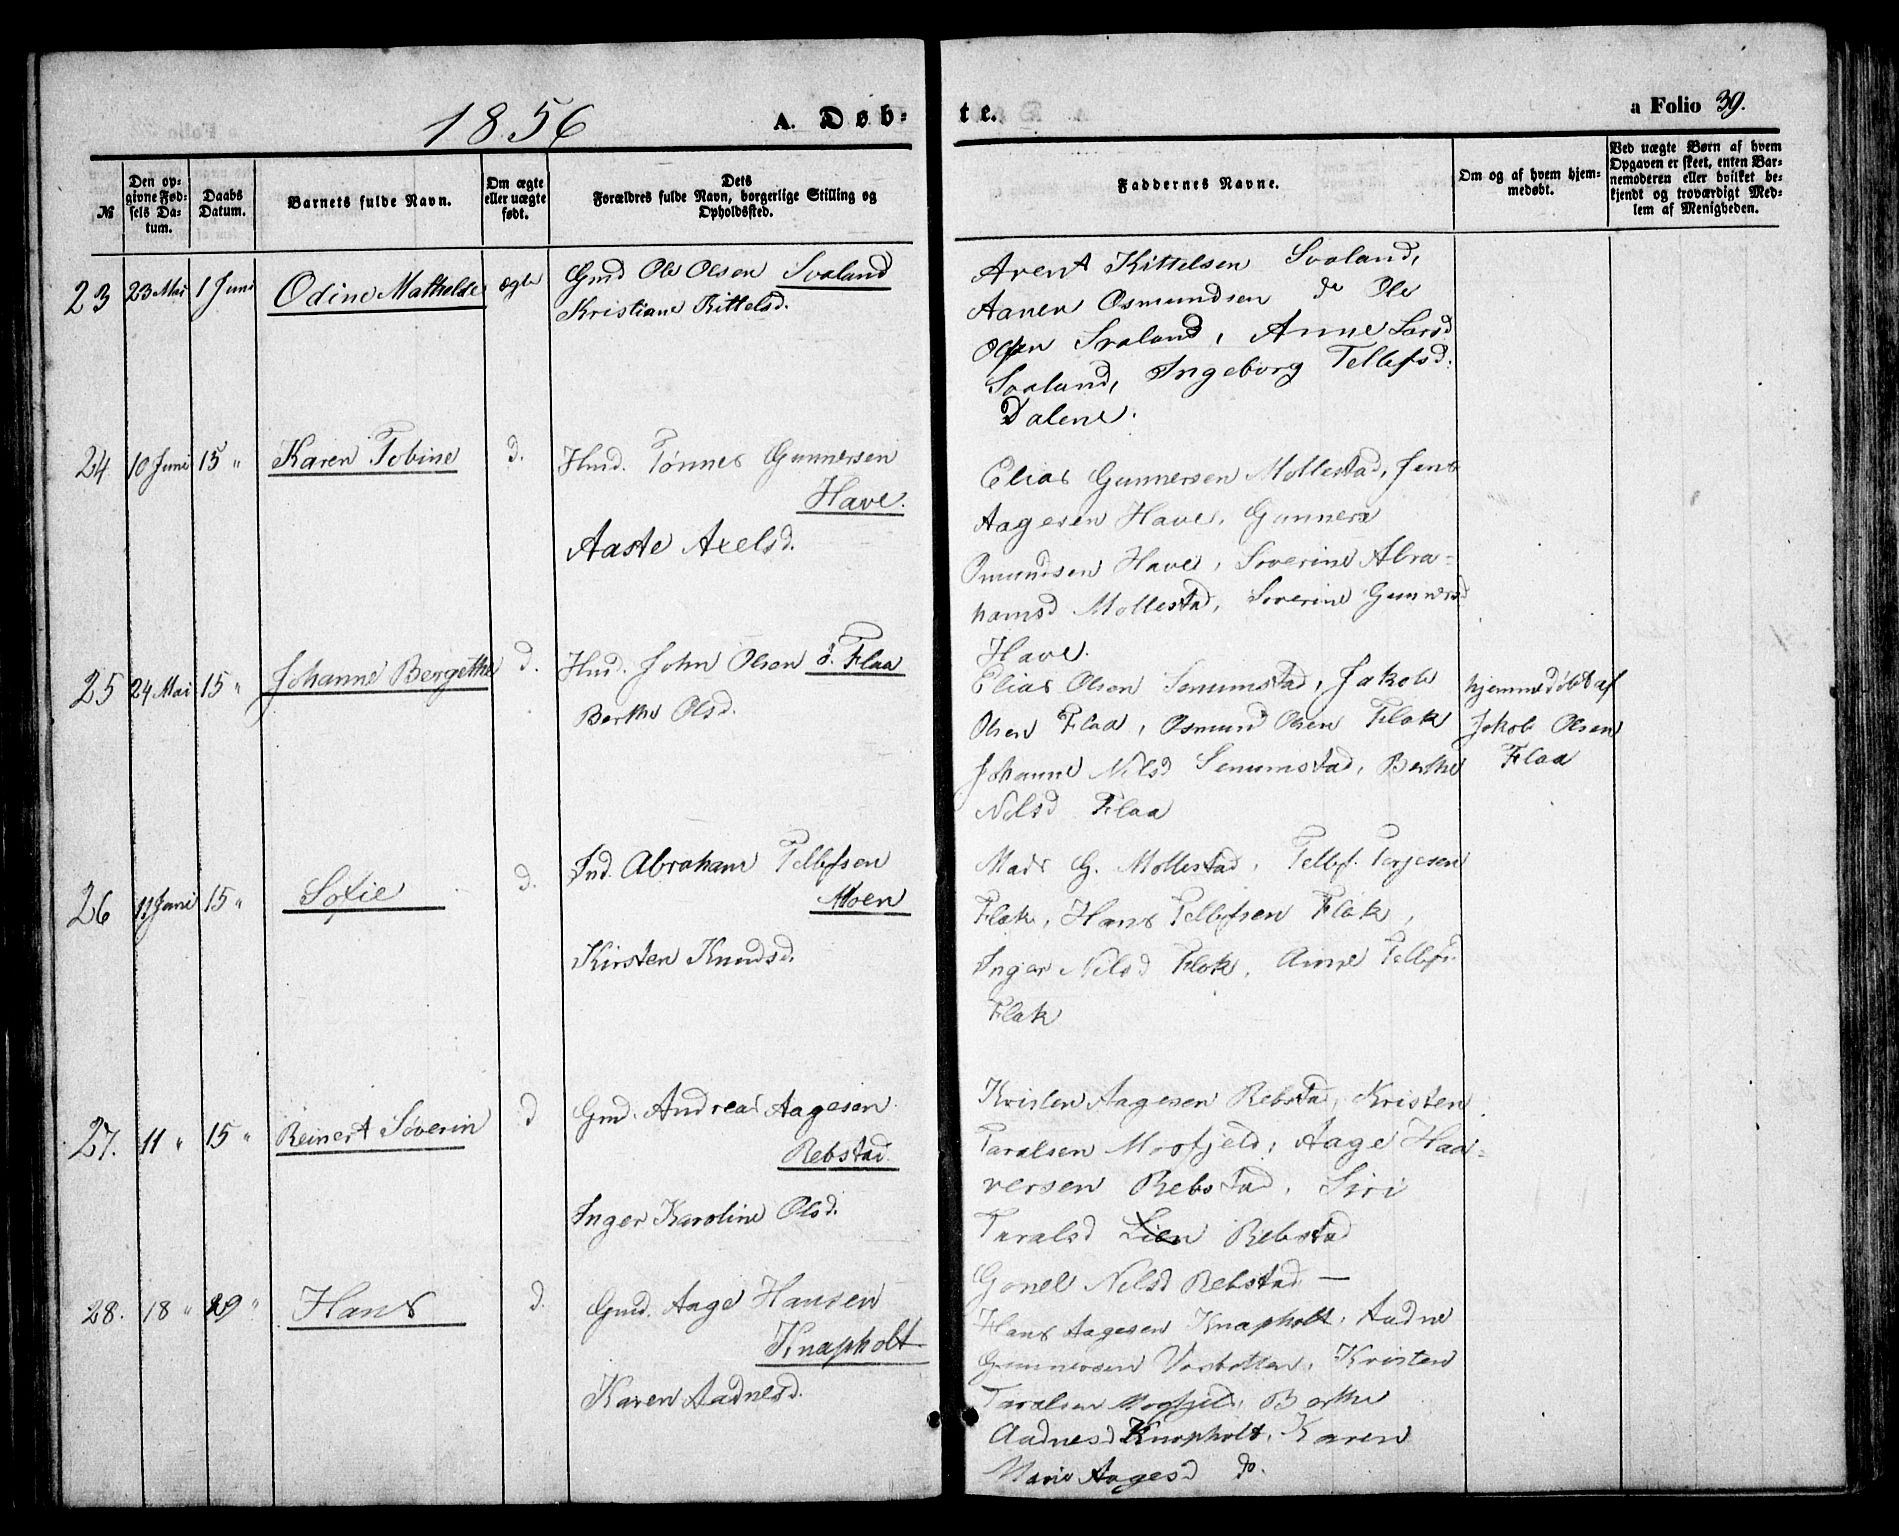 1856 A. Døb-
te.
a Folio 39.
№
Den op-
givne Fød-
sels Da-
tum.
Daabs
Datum.
Barnets fulde Navn.
Om ægte
eller uægte
født.
Dets
Forældres fulde Navn, borgerlige Stilling og
Opholdssted.
Faddernes Navne.
Om og af hvem hjem-
medøbt.
Ved uægte Børn af hvem
Opgaven er skeet, enten Bar-
nemoderen eller hvilket be-
kjendt og troværdigt Med-
lem af Menigheden.
23 23 Mai 1 Juni Odine Mathilde ægte Gmd Ole Olsen Svaland
Kristiane Kittelsd.
Arent Kittelsen Svaland,
Aanen Osmundsen do Ole
Olsen Svaland, Anne Larsd
Svaland, Ingeborg Tellefsd.
Dalene.
24 10 Juni 15 " Karen Tobine d. Hmd. Tønnes Gunnersen
Have.
Aaste Axelsd.
Elias Gunnersen Mollestad, Jens
Aagesen Have, Gunner
Omundsen Have, Severine Abra-
hamsd Mollestad, Severine Gunnersd
Have.
25 24 Mai 15 " Johanne Bergethe d. Hmd. John Olsen ø. Flaa
Berthe Olsd.
Elias Olsen Senumstad, Jakob
Olsen Flaa, Osmund Olsen Flak
Johanne Nilsd Senumstad, Berthe
Nilsd Flaa
hjemmedøbt af
Jakob Olsen
Flaa
26 11 Juni 15 " Sofie d. Ind. Abraham Tellefsen
Moen
Kirsten Knudsd.
Mads G. Mollestad, Tellef Terjesen
Flak, Hans Tellefsen Flak,
Inger Nilsd Flak, Anne Tellefs.
Flak
27. 11 " 15 " Reinert Søverin d Gmd. Andreas Aagesen
Rebstad.
Inger Karoline Olsd.
Kristen Aagesen Rebstad, Kristen
Taralsen Mosfjeld, Aage Haa-
versen Rebstad, Siri
Taralsd Lien Rebstad
Gonel Nilsd Rebstad —
28. 18 " 29 " Hans d. Gmd. Aage Hansen
Knapholt
Karen Aadnesd.
Hans Aagesen Knapholt, Aadne
Gunnersen Vasbotten, Kristen
Taralsen Mosfjeld, Berthe
Aadnesd Knapholt, Karen
Marie Aagesd do.